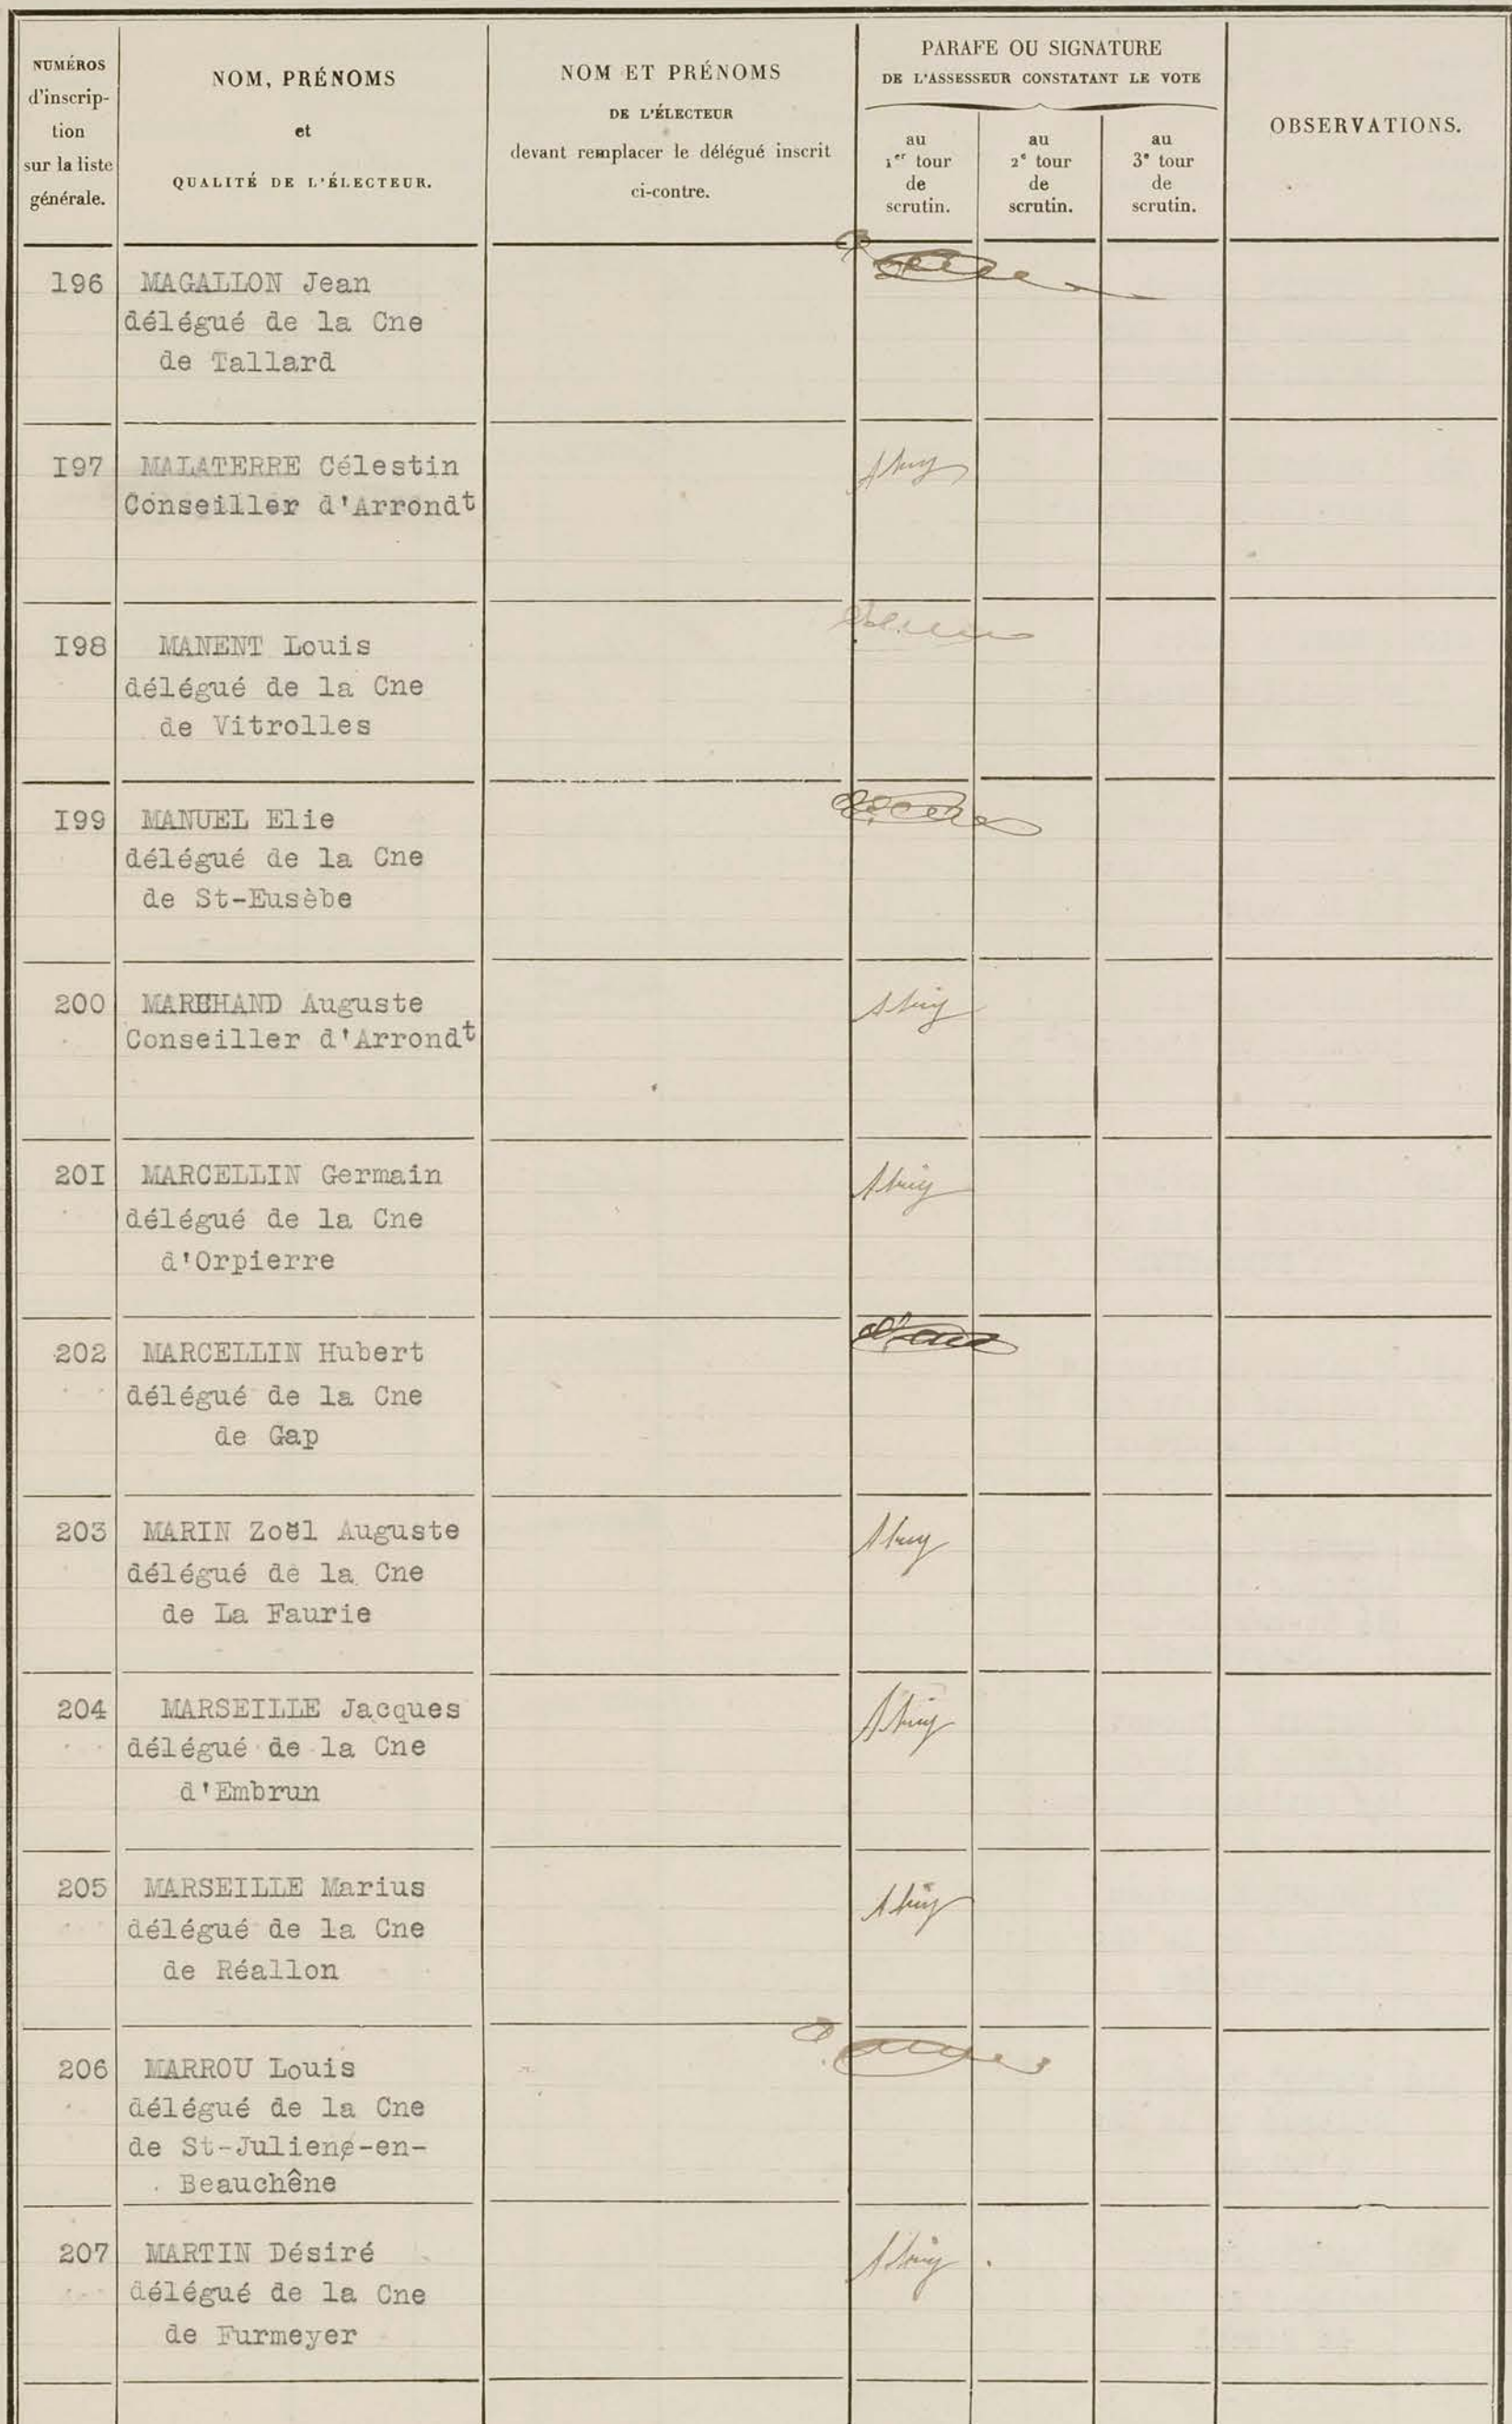 NUMÉROS
d'inscrip-
tion
sur la liste
générale.
NOM, PRÉNOMS
et
QUALITÉ DE L'ÉLECTEUR.
NOM ET PRÉNOMS
DE L'ÉLECTEUR
devant remplacer le délégué inscrit
ci-contre.
PARAFE OU SIGNATURE
DE L'ASSESSEUR CONSTATANT LE VOTE
au
1er tour
de
scrutin.
au
2e tour
de
scrutin.
au
3e tour
de
scrutin.
OBSERVATIONS.
196 MAGALLON Jean
délégué de la Cne
de Tallard
I97 MALATERRE Célestin
Conseiller d'Arrondt
I98 MANENT Louis
délégué de la Cne
de Vitrolles
I99 MANUEL Elie
délégué de la Cne
de St-Eusèbe
200 MARCHAND Auguste
Conseiller d'Arrondt
20I MARCELLIN Germain
délégué de la Cne
d'Orpierre
202 MARCELLIN Hubert
délégué de la Cne
de Gap
203 MARIN Zoël Auguste
délégué de la Cne
de La Faurie
204 MARSEILLE Jacques
délégué de la Cne
d'Embrun
205 MARSEILLE Marius
délégué de la Cne
de Réallon
206 MARROU Louis
délégué de la Cne
de St-Juliene-en-
Beauchêne
207 MARTIN Désiré
délégué de la Cne
de Furmeyer